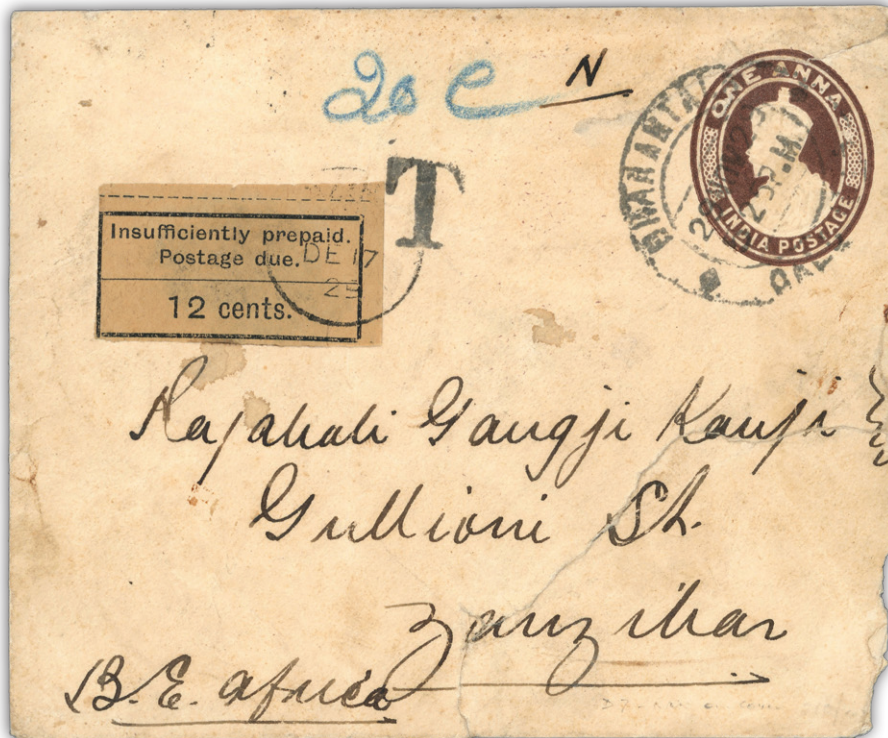 20 c N
ONE ANNA
INDIA POSTAGE
T
Insufficiently prepaid.
Postage due.
12 cents.
DE 17
25
Rajabali Gangji Kanji
Gullioni St.
Zanzibar
B. E. Africa